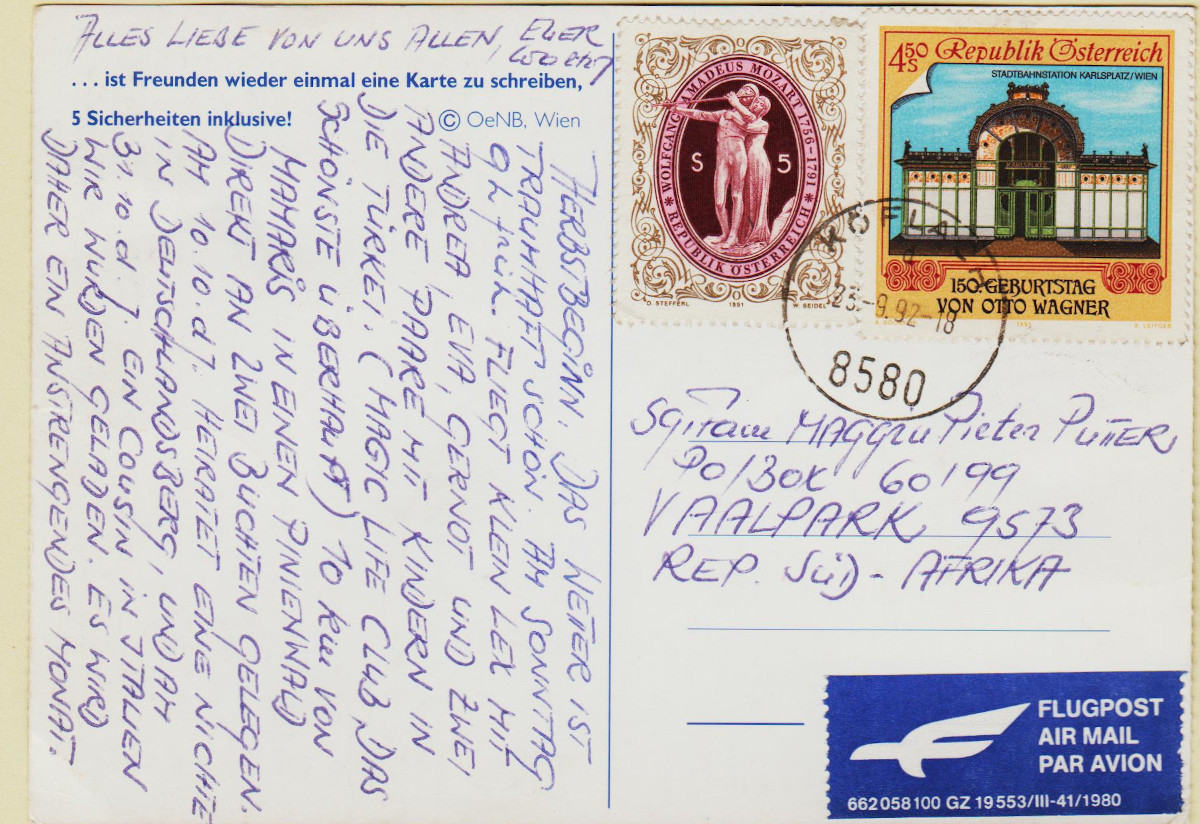 ALLES LIEBE VON UNS ALLEN, EUER
... ist Freunden wieder einmal eine Karte zu schreiben,
5 Sicherheiten inklusive!
© OeNB, Wien
HERBSTBEGINN. DAS WETTER IST
TRAUMHAFT SCHÖN. AM SONNTAG
9h früh FLIEGT KLEIN LEX MIT
ANDREA, EVA, GERNOT UND ZWEI
ANDERE PAARE MIT KINDERN IN
DIE TÜRKEI (MAGIC LIFE CLUB, DAS
SCHÖNSTE ÜBERHAUPT) 10 km VON
MAMARIS IN EINEN PINIENWALD
DIREKT AN ZWEI BUCHTEN GELEGEN.
AM 10.10.d.J. HEIRATET EINE NICHTE
IN DEUTSCHLANDSBERG, UND AM
31.10.d.J. EIN COUSIN IN ITALIEN
WIR WURDEN GELADEN. ES WIRD
DAHER EIN ANSTRENGENDES MONAT.
WOLFGANG AMADEUS MOZART 1756-1791
S 5
REPUBLIK ÖSTERREICH
D. STEFFERL 1991 W. SEIDEL
4.50 S Republik Österreich
STADTBAHNSTATION KARLSPLATZ/WIEN
KARLSPLATZ
150. GEBURTSTAG
VON OTTO WAGNER
1991
KÖFLACH
23.-9.92-18
8580
PIETER PUTTER
PO/BOX 60199
VAALPARK 9573
REP. SÜD-AFRIKA
FLUGPOST
AIR MAIL
PAR AVION
662 058 100 GZ 19 553/III-41/1980